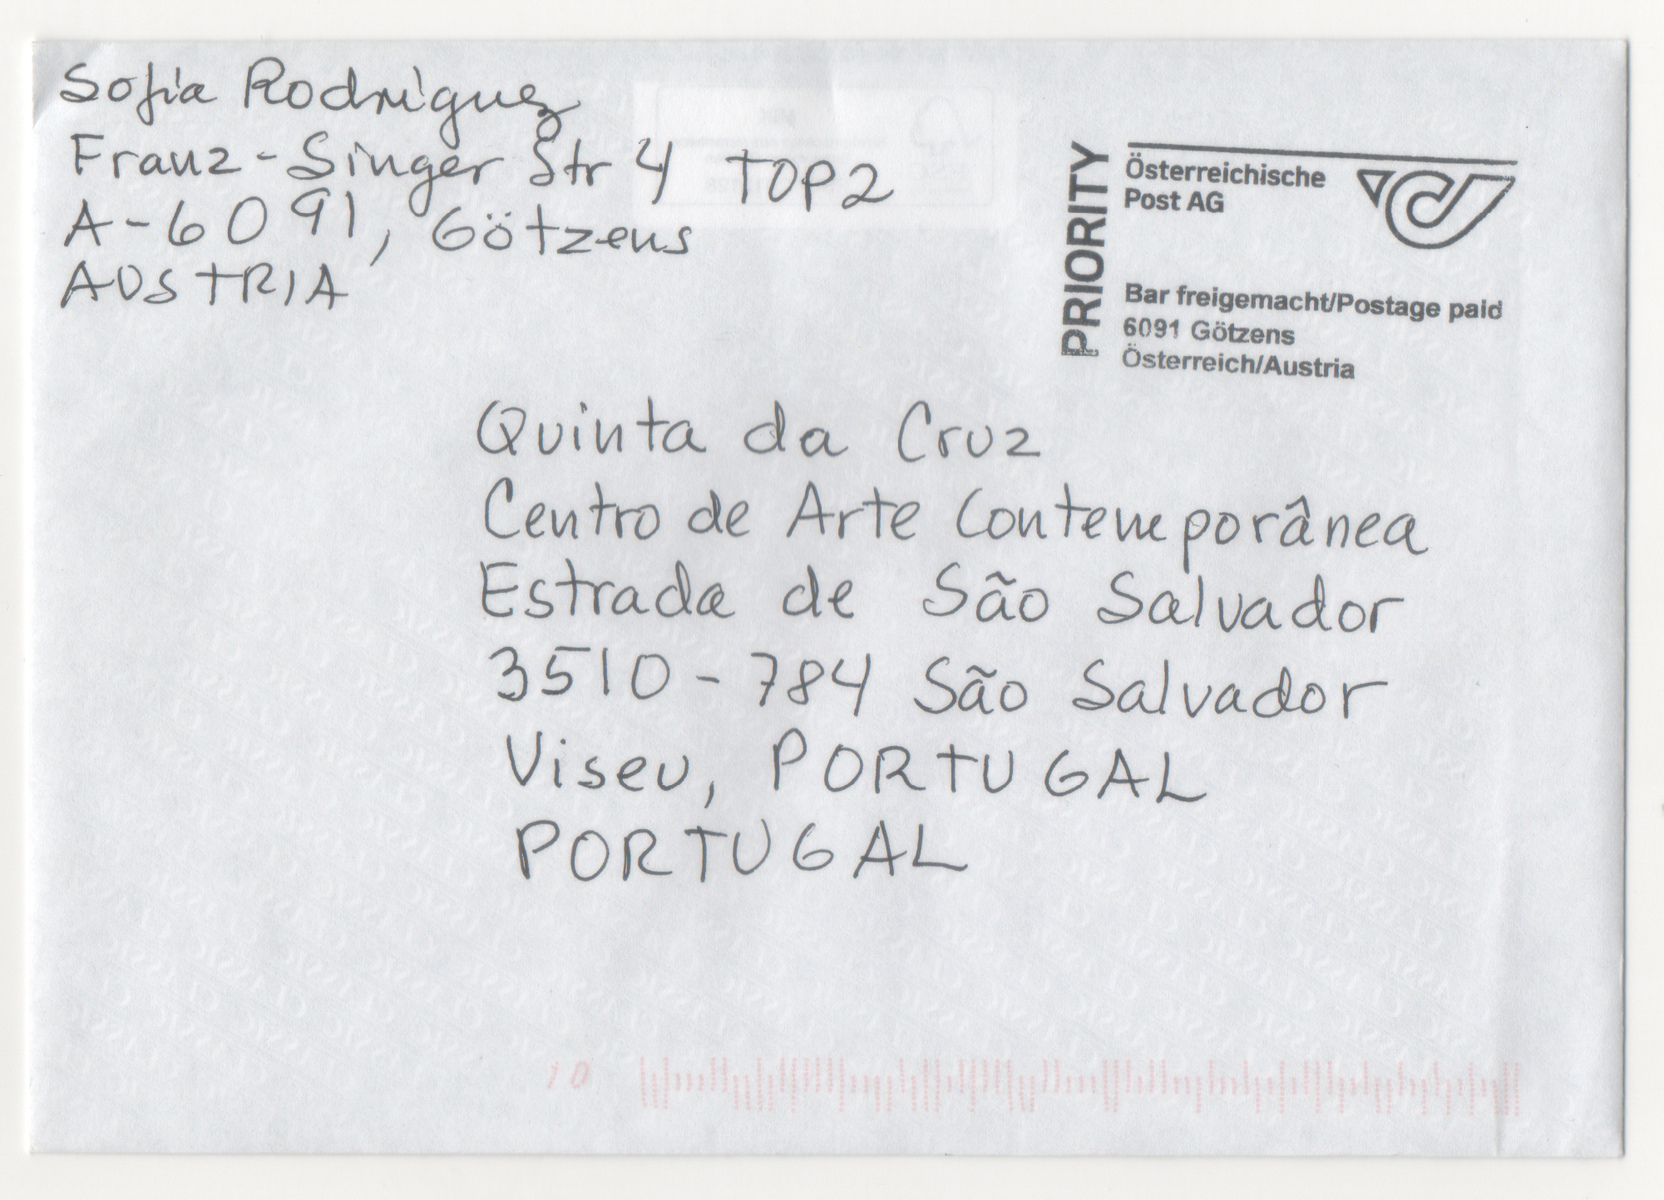 Sofia Rodriguez
Franz-Singer Str 4 TOP2
A-6091, Götzens
AUSTRIA
PRIORITY
Österreichische
Post AG
Bar freigemacht/Postage paid
6091 Götzens
Österreich/Austria
Quinta da Cruz
Centro de Arte Contemporânea
Estrada de São Salvador
3510-784 São Salvador
Viseu, PORTUGAL
PORTUGAL